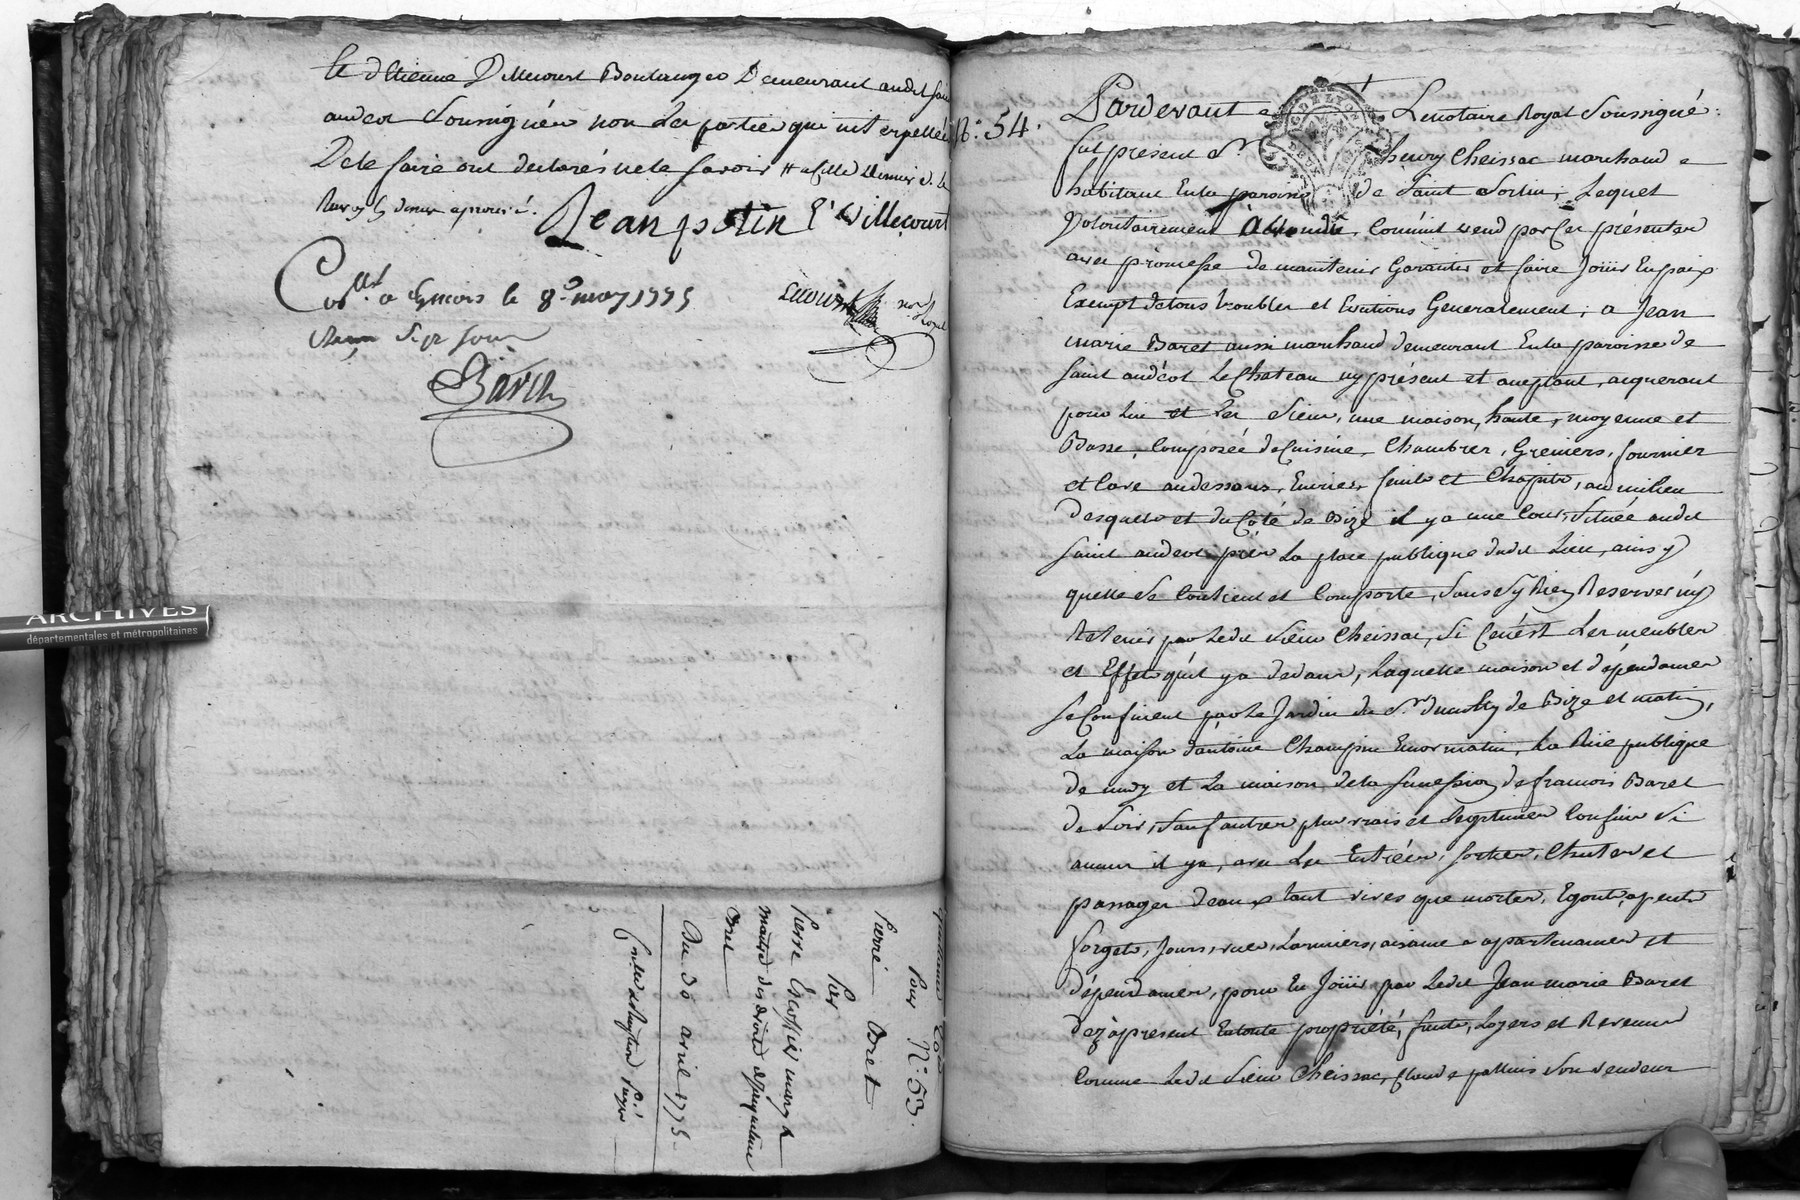 le d Etienne Villecourt Boulanger Demeurant audit saint
andeol Soussignées non les parties qui int erpellées
De le faire ont declarés ne le savoir
Rayés
Jean potin E. Villecourt
Coll. a Givors le 8e. may 1775
Reçu sept sous
Giarin
not. Royal
N° 53.
Pour
Pierre Bret
Par
Pierre Escoffier march.d
maitre des droits
Bret
Du 30 avril 1775
N°. 54.
Pardevant Le notaire Royal Soussigné:
fut présent Sr. henry Cheissac marchand
habitant En la paroisse de Saint Sorlin, Lequel
Volontairement a vendu, Comme il vend par Ces présentes
avec promesse de maintenir Garantir et faire Joüir En paix
Exempt de tous troubles et Evictions Generalement; a Jean
marie Baret aussi marchand demeurant En la paroisse de
Saint andéol Le Chateau icy présent et aceptant, acquerant
pour lui et les Siens, une maison, haute, moyenne et
Basse, Composée de Cuisine, Chambres, Greniers, fournier
et Cave au dessous, Ecuries, fenils et Chapits, au milieu
desquels et du Côté de Bize il y a une Cour, Située audit
Saint andeol près La place publique dudit Lieu, ainsy
quelle se Contient et Comporte, Sans S'y Rien Reserver ny
Retenir par Ledit Sieur Cheissac, Si Ce n'est Les meubles
et Effets qu'il y a dedans, Laquelle maison et dépendances
se Confinent par Le Jardin du Sr. de Bize et matin,
La maison d'antoine Champin Encor matin, La Rüe publique
de midy et La maison de la Succession de francois Baret
de Soir, Sauf autres plus vrais et Legitimes Confins Si
aucuns il y a, avec Les Entrées, Sorties, Chutes et
passages d'eaux tant vives que mortes, Egouts, apents
forgets, Jours, vues, Larmiers, aisances apartenances et
dépendances, pour En Joüir par Ledit Jean marie Baret
dez àpresent En toute propriété, fruits, Loyers et Revenus
Comme Ledit Sieur Cheissac, Son vendeur
ARCHIVES
départementales et métropolitaines